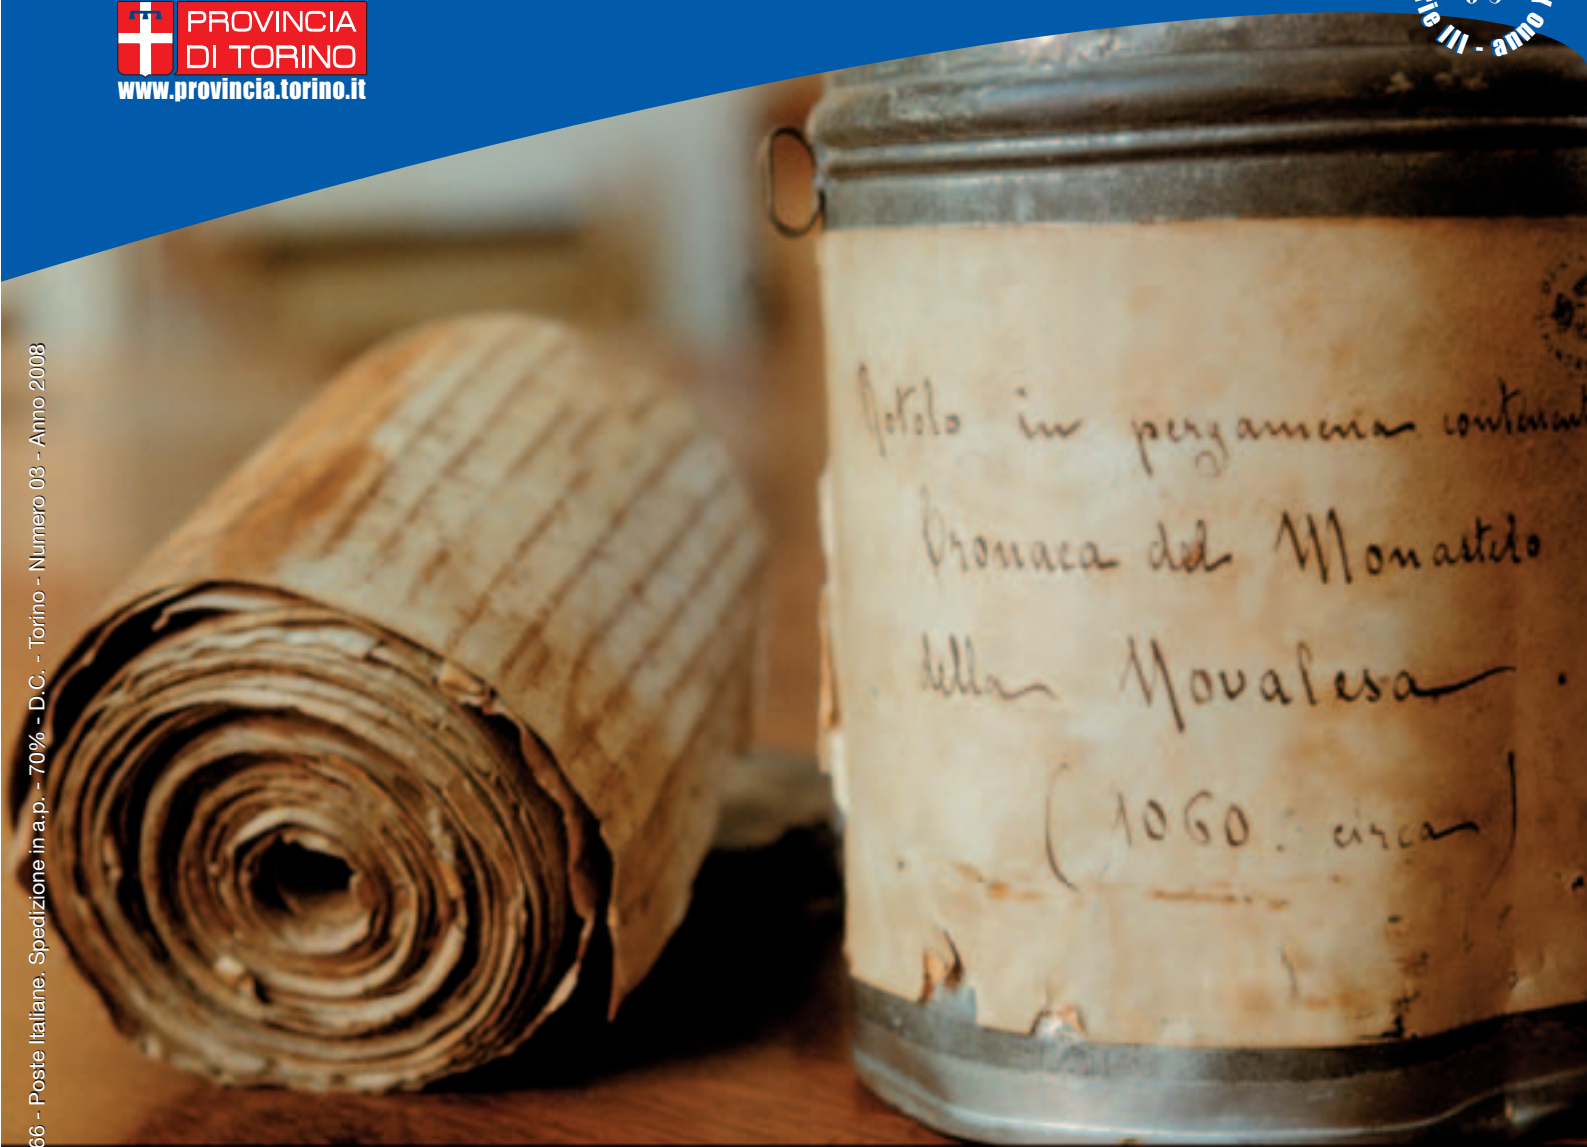 PROVINCIA
DI TORINO
www.provincia.torino.it
III - anno
66 - Poste Italiane. Spedizione in a.p. - 70% - D.C. - Torino - Numero 03 - Anno 2008
Rotolo in pergamena
Cronaca del Monastero
della Novalesa.
(1060. circa)